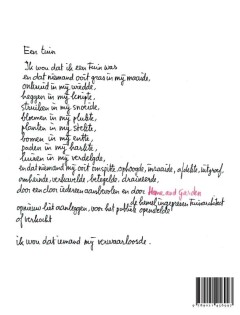 Een tuin
Ik wou dat ik een tuin was
en dat niemand ooit gras in mij maaide,
onkruid in mij wiedde,
heggen in mij knipte,
struiken in mij snoeide,
bloemen in mij plukte,
planten in mij stekte,
bomen in mij entte,
paden in mij harkte,
tuinen in mij verdelgde,
en dat niemand mij ooit omspitte, ophoogde, inzaaide, afdekte, uitgroef,
omheinde, verkavelde, betegelde, draineerde,
door een door iedereen aanbevolen en door Home and Garden
de hemel ingeprezen tuinarchitect
opnieuw liet aanleggen, voor het publiek openstelde
of verkocht
ik wou dat iemand mij verwaarloosde.